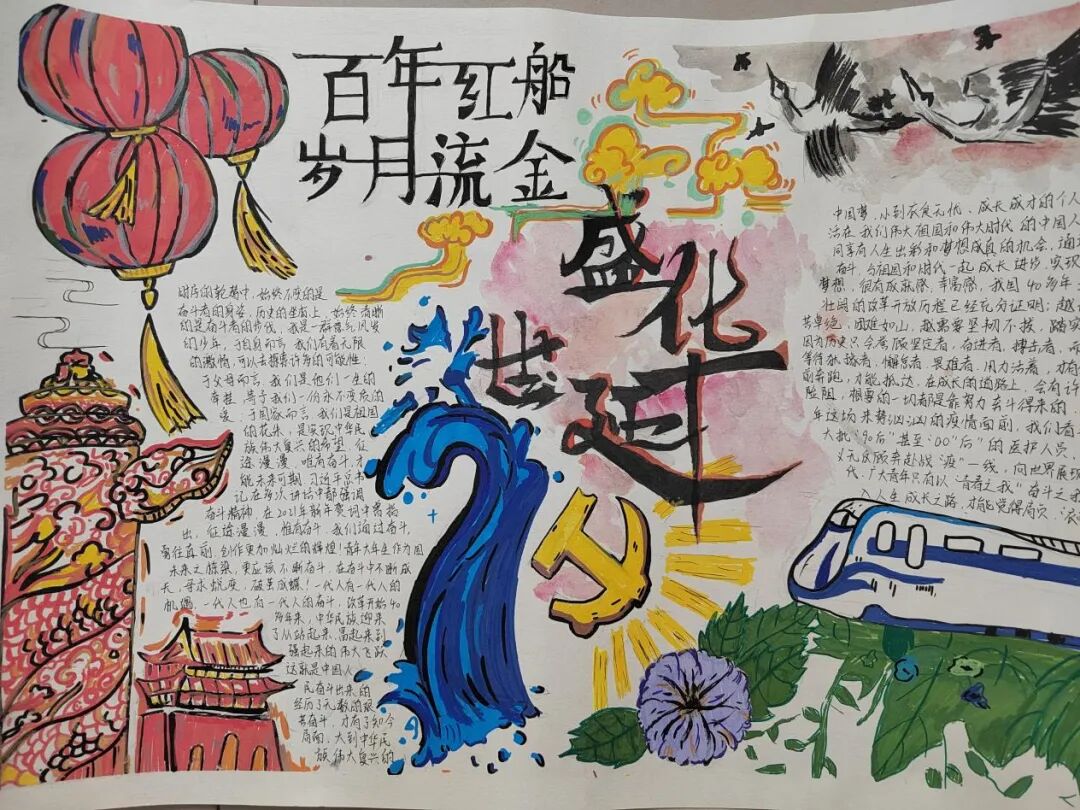 百年红船
岁月流金
盛世
华延
时序的轮替中，始终不变的是
奋斗者的身姿，历史的坐标上，始终清晰
的是奋斗者的步伐，我是一群意气风发
的少年，于自身而言，我们有着无限
的激情，可以去探索许多的可能性！
于父母而言，我们是他们一生的
牵挂，是予我们一份永不变质的
爱；于国家而言，我们是祖国
的花朵，是实现中华民
族伟大复兴的希望，征
途漫漫，唯有奋斗，才
能未来可期，习近平总书
记在多次讲话中都强调
奋斗精神，在2021年新年贺词中曾指
出，征途漫漫，惟有奋斗，我们通过奋斗，
勇往直前，创作更加灿烂的辉煌！青年大学生作为国
未来之栋梁，更应该不断奋斗，在奋斗中不断成
长，寻求蜕变，破茧成蝶！一代人有一代人的
机遇，一代人也有一代人的奋斗，改革开始40
多年来，中华民族迎来
了从站起来、富起来到
强起来的伟大飞跃
这就是中国人
民奋斗出来的
经历了无数的艰
苦奋斗，才有了如今
局面，大到中华民
族伟大复兴的
中国梦，小到衣食无忧、成长成才的个人
活在我们伟大祖国和伟大时代的中国人
同享有人生出彩和梦想成真的机会，通
奋斗，与祖国和时代一起成长进步，实现
梦想，很有成就感，幸福感，我国40多年
壮阔的改革开放历程已经充分证明：越
苦卓绝，困难如山，越需要坚韧不拔，踏实
因为历史只会眷顾坚定者、奋进者、搏击者，而
等待犹豫者、懈怠者、畏难者，用力活着，才有
前奔跑，才能抵达，在成长的道路上，会有许
险阻，想要的一切都是靠努力奋斗得来的，
年这场来势汹汹的疫情面前，我们看
大批“90后”甚至“00后”的医护人员，
义无反顾奔赴战“疫”一线，向世界展现
代，广大青年只有以“青春之我”奋斗之我
入人生成长之路，才能觉得肩